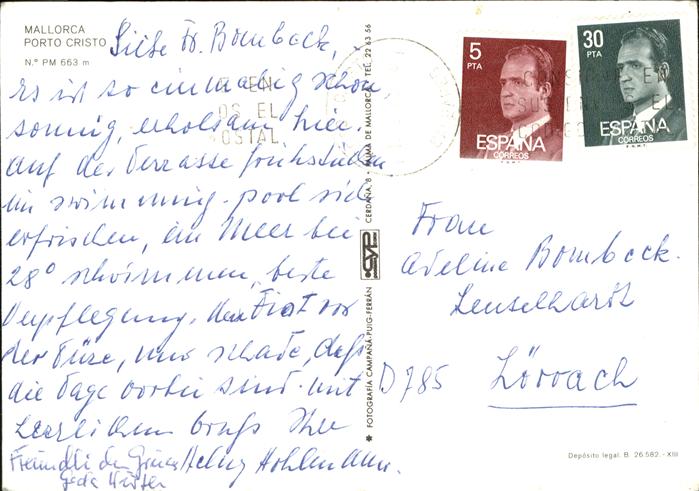 MALLORCA
PORTO CRISTO
N.º PM 663 m
Liebe Fr. Bombeck,
es ist so einmalig schön,
sonnig, erholsam hier.
Auf der Terrasse frühstücken
im swimming-pool sich
erfrischen, im Meer bei
28° schwimmen, beste
Verpflegung, den Fiat vor
der Türe, nur schade, daß
die Tage vorbei sind. mit
herzlichem Gruß Ihre
Helmy
Freundliche Grüße
FOTOGRAFÍA CAMPAÑÁ-PUIG-FERRÁN
CYP
CERDAÑA, 8 - PALMA DE MALLORCA - TEL. 22 63 56
5
PTA
ESPAÑA
CORREOS
F.N.M.T.
30
PTA
ESPAÑA
CORREOS
F.N.M.T.
EN
EL
Frau
Adeline Bombeck.
D 785 Lörrach
Depósito legal. B. 26.582.-XIII